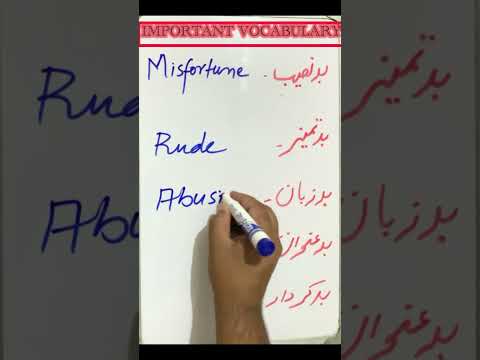 IMPORTANT VOCABULARY
Misfortune - بدنصیب
Rude - بدتمیز
Abusi - بدزبان
بدکردار